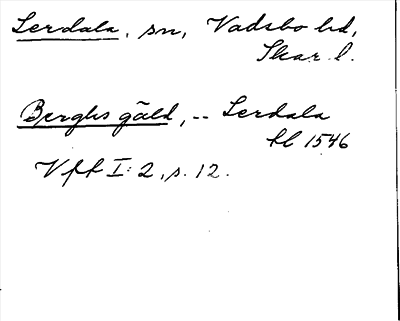 Lerdala, sn, Vadsbo hd,
Skar. l.
Berghs gäld, -- Lerdala
hl 1546
Vff I: 2, s. 12.